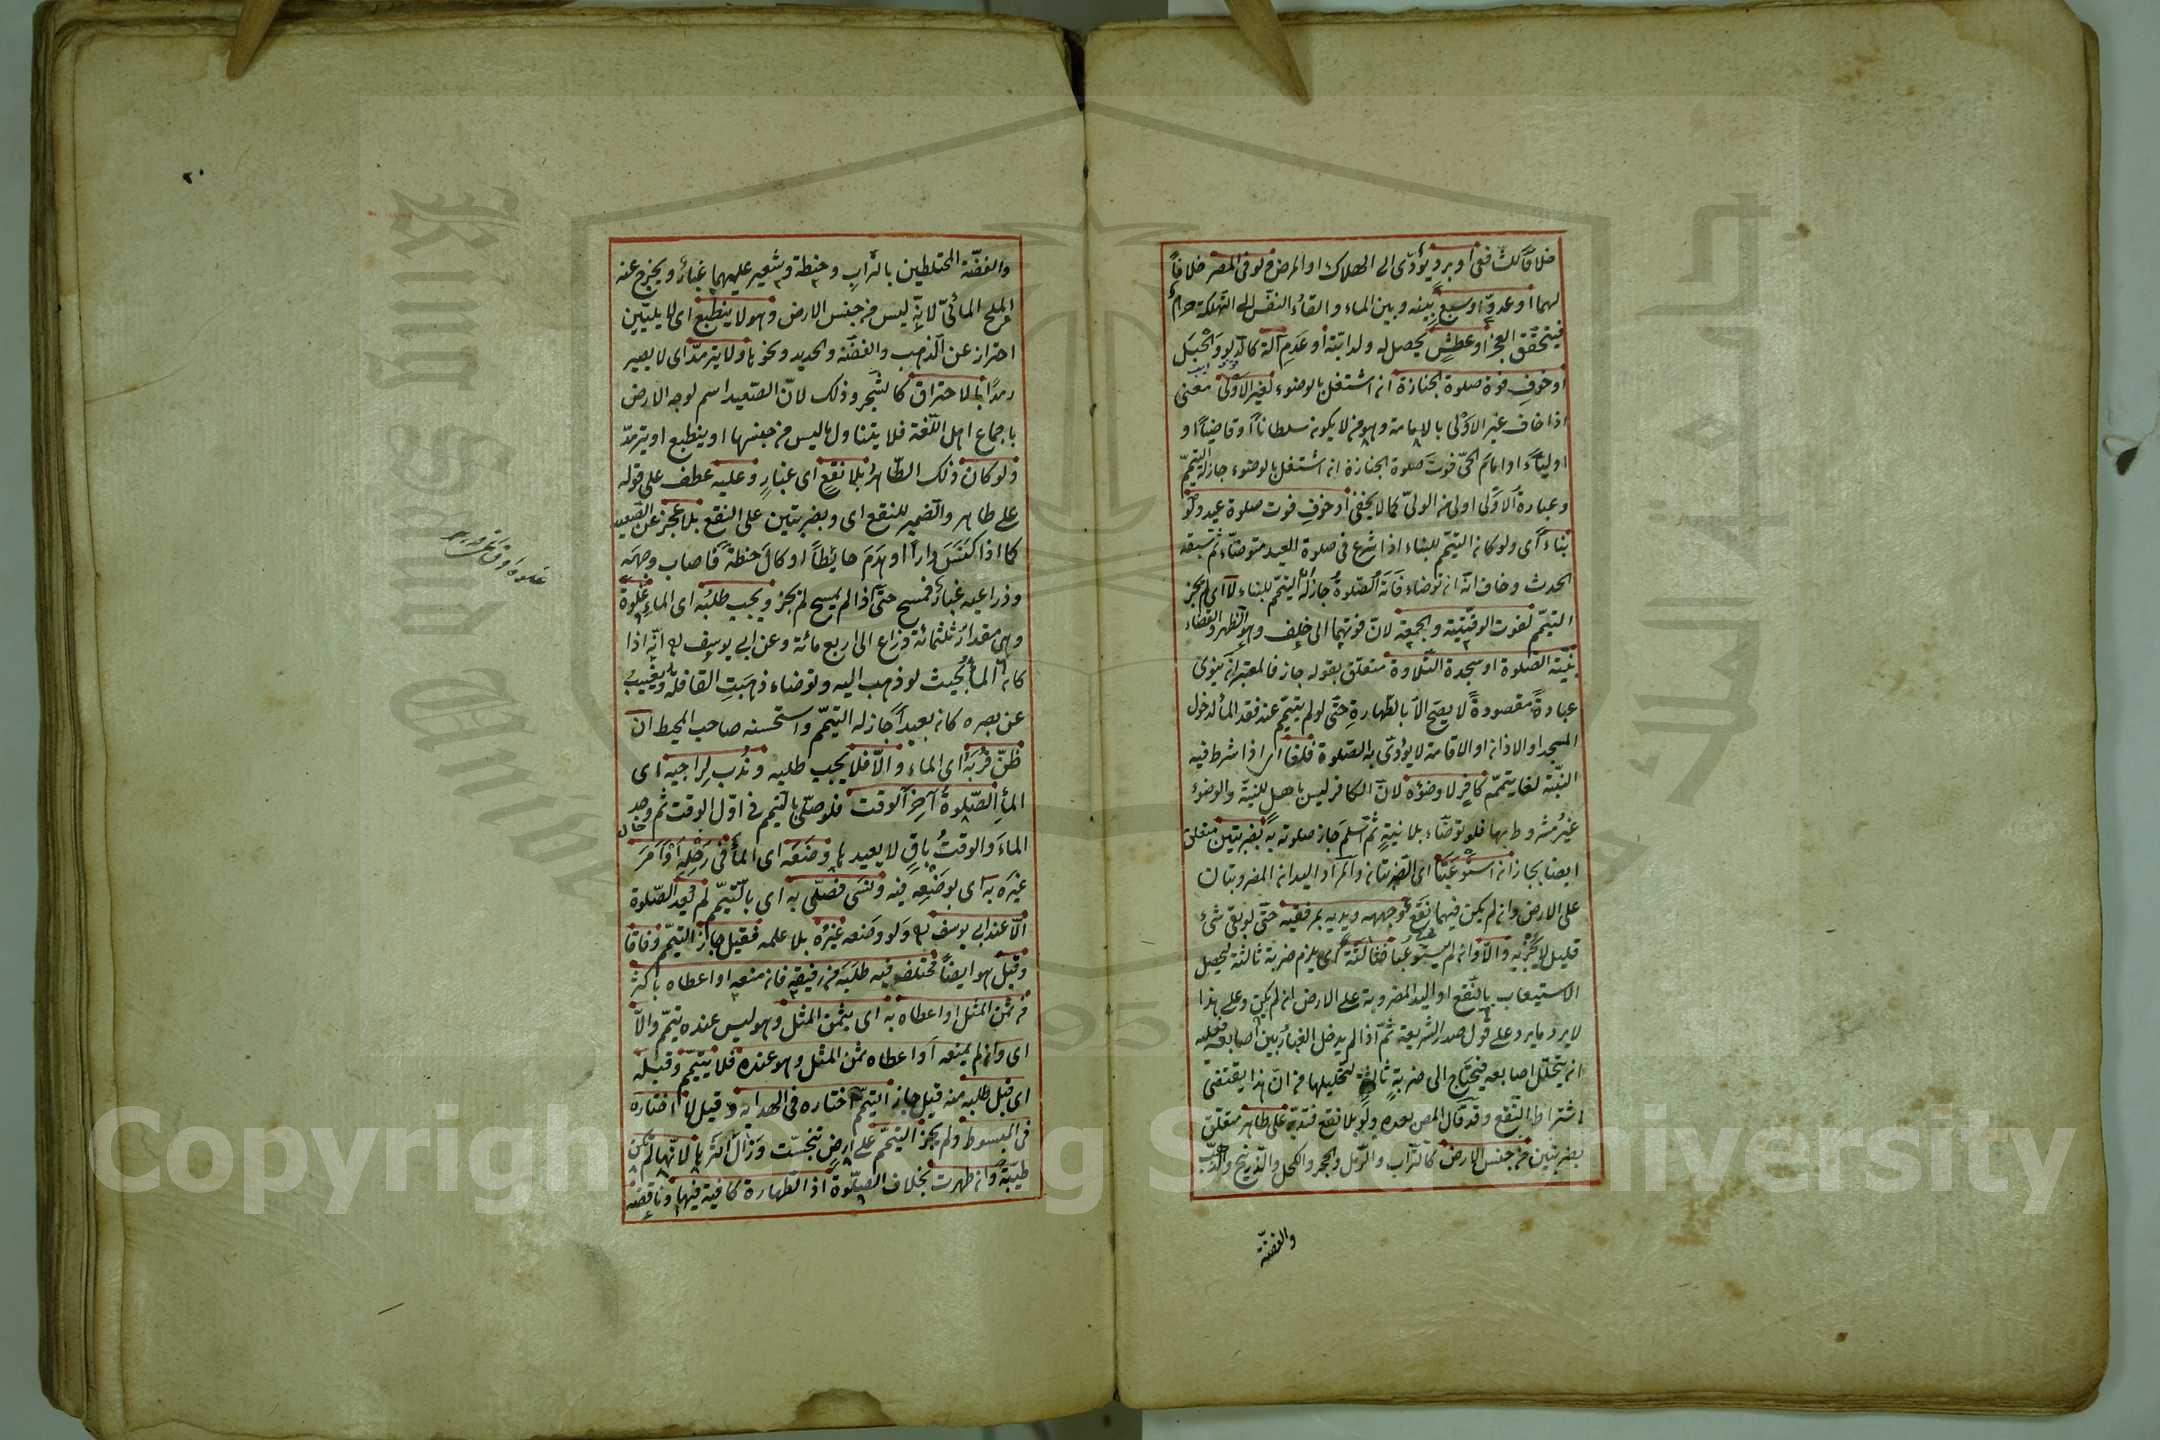 خلافا كث فعى أو برد يؤدى الى الهلاك او المرض ولو فى المصر خلافا
لهما او عدوّ او سبع بينه وبين الماء والقاء النفس الى التهلكة حرام
فيتحقق العجز أو عطش يحصل له ولدابّته أو عدم آلة كالدلو والحبل
أو خوف فوة صلوة الجنازة ان اشتغل بالوضوء لغير الأولى معنى
اذا خاف غير الاولى بالامامة وهو من لا يكون سلطانا أو قاضيا أو
اولياء او امام الحىّ فوت صلوة الجنازة ان اشتغل بالوضوء جاز له التيمّم
وعبارة الاولى اولى من الولىّ كما لا يخفى أو خوف فوت صلوة عيد ولو
بناء أى ولو كان التيمّم للبناء اذا شرع فى صلوة العيد متوضّأ ثم سبقه
الحدث وخاف انه ان توضاء فاتة الصلوة جاز له التيمّم للبناء لا اى لم يجز
التيمّم لفوت الوقتية والجمعة لانّ فوتهما الى خلف وهو الظهر والقضاء
بنيّة الصلوة او سجدة التلاوة متعلق بقوله جاز فالمعتبر ان ينوى
عبادة مقصودة لا يصح الا بالطهارة حتّى لو لم يتيمّم عند فقد الماء لدخول
المسجد او الاذان او الاقامة لا يؤدّى به الصلوة فلغا اى اذا شرط فيه
النيّة لغا يتممّه كافر لا وضوءه لان الكافر ليس باهل للنيّة والوضوء
غير مشروط بها فلو توضّاء بلا نية ثم اسلم جاز صلوته به بضربتين متعلق
ايضا بجاز ان استوعبتا اى الضربتان والمراد اليدان المضروبتان
على الارض وان لم يكن فيهما نقع وجهه ويديه بمرفقيه حتى لو بقى شئ
قليل لا يجزيه والّا وان لم يستوعبا فثالثة اى يلزم ضربة ثالثة ليحصل
الاستيعاب بالنقع او اليد المضروبة على الارض ان لم يكن وعلى هذا
لا يرد ما يرد على قول صدر الشريعة ثمّ اذا لم يدخل الغبار بين اصابعه فعليه
ان يتخلّل اصابعه فيحتاج الى ضربة ثالثة لتخليلها من انّ هذا يقتضى
اشتراط النقع وقد قال المص بعده ولو بلا نقع فتدبّر على طاهر متعلق
بضربتين من جنس الارض كالتراب والرمل والحجر والكحل والزرنيخ والذهب
والفضّة
والفضّة المختلطين بالتراب وحنطة وشعير عليهما غبار ويخرج عنه
الملح المائىّ لانه ليس من جنس الارض وهو لا ينطبع اى لا يليّن
احتراز عن الذهب والفضة والحديد ونحوها ولا يترمدّ اى لا يصير
رمادا بالاحتراق كالشجر وذلك لانّ الصعيد اسم لوجه الارض
باجماع اهل اللّغة فلا يتناول ما ليس من جنسها او ينطبع او يترمدّ
ولو كان ذلك الطاهر بلا نقع اى غبار وعليه عطف على قوله
على طاهر والضمير للنقع اى وبضربتين على النقع بلا عجز عن الصعيد
كما اذا كنس دارا او هدم حايطا او كال حنطة فاصاب وجهه
وذراعيه غبار فمسح حتّى اذا لم يمسح لم يجز ويجب طلبه اى الماء غلوة
وهى مقدار ثلثمائة ذراع الى اربع مائة وعن ابى يوسف ره انّه اذا
كان الماء بحيث لو ذهب اليه وتوضاء ذهبت القافلة ويغيب
عن بصره كان بعيدا جاز له التيمّم واستحسنه صاحب المحيط ان
ظنّ قربه اى الماء والّا فلا يجب طلبه وندب لراجيه اى
الماء الصلوة آخر الوقت فلو صلّى بالتيمم فى اوّل الوقت ثم وجد
الماء والوقت باق لا يعيدها وضعه اى الماء فى رحله او امر
غيره به اى بوضعه فيه ونسى فصلّى به اى بالتيمّم لم يعد الصّلوة
الّا عند ابى يوسف ره ولو وضعه غيره بلا علمه فقيل جاز التيمّم وفاقا
وقيل هو ايضا مختلف فيه طلبه من رفيقه فان منعه او اعطاه باكثر
من ثمن المثل او اعطاه به اى بثمن المثل وهو ليس عنده تيمّم والّا
اى وان لم يمنعه او اعطاه بثمن المثل وهو عنده فلا يتيمّم وقبله
اى قبل طلبه منه قيل جاز التيمّم اختاره فى الهداية وقيل لا اختاره
فى المبسوط ولم يجز التيمّم على ارض تنجّست وزال اثرها لانّها لم تكن
طيّبة وان طهرت بخلاف الصلوة اذ الطّهارة كافية فيها وناقضه